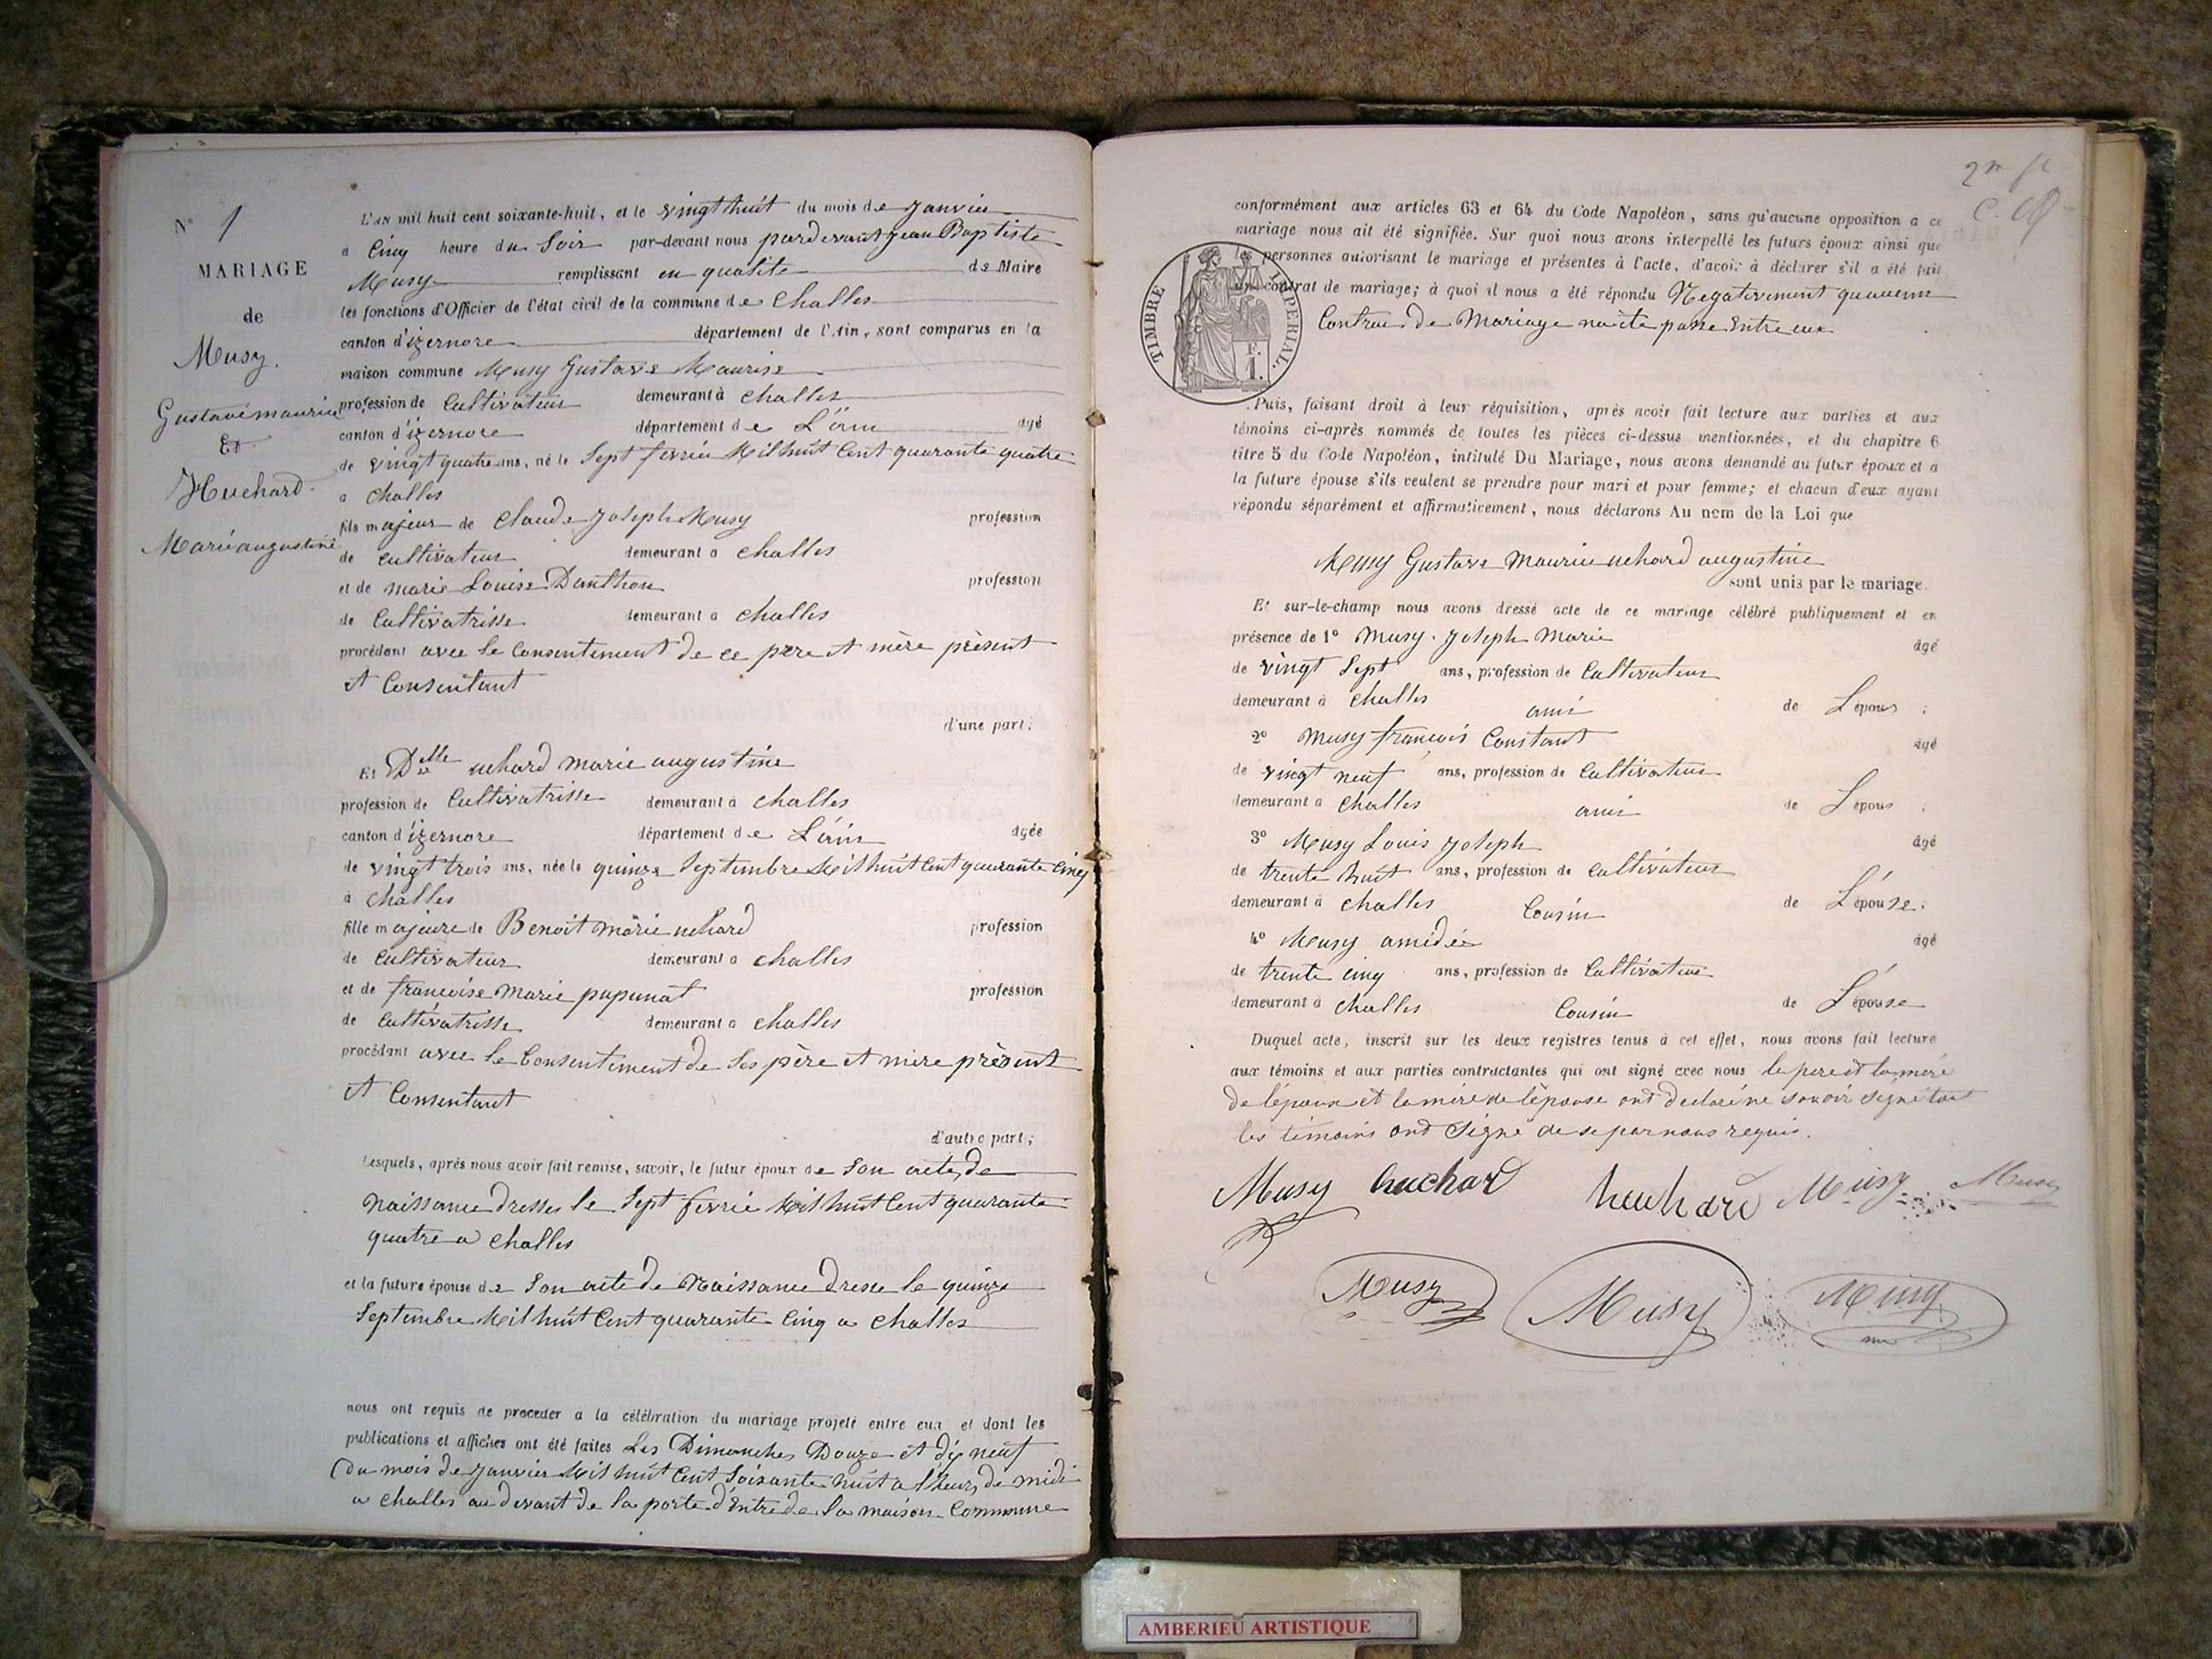 N° 1
MARIAGE
de
Musy.
Gustave maurice
Et
Huchard.
Marie augustine
L'AN mil huit cent soixante-huit, et le vingt huit du mois de Janvier
à Cinq heure du Soir par-devant nous pardevant Jean Baptiste
Musy remplissant en qualité de Maire
les fonctions d'Officier de l'état civil de la commune de Challes
canton d'izernore département de l'Ain, sont comparus en la
maison commune Musy Gustave Maurise
profession de Cultivateur demeurant à Challes
canton d'izernore département de L'ain âgé
de vingt quatre ans, né le Sept fevrier Mil huit Cent quarante quatre
à Challes
fils majeur de Claude Joseph Musy profession
de cultivateur demeurant à Challes
et de marie Louise Danthon profession
de Cultivatrisse demeurant à Challes
procédant avec le Consentement de ce père et mère présent
et Consentant
d'une part;
Et Delle uchard marie augustine
profession de Cultivatrisse demeurant à Challes
canton d'izernore département de L'ain âgée
de vingt trois ans, née le quinze Septembre Mil huit Cent quarante Cinq
à Challes
fille majeure de Benoit marie uchard profession
de Cultivateur demeurant à Challes
et de francoise Marie papunat profession
de Cultivatrisse demeurant à Challes
procédant avec le Consentement de Ses père et mère présent
et Consentant
d'autre part;
Lesquels, après nous avoir fait remise, savoir, le futur époux de Son acte de
Naissance dresser le Sept fevrié Mil huit Cent quarante
quatre a Challes
et la future épouse de Son acte de Naissance dresse le quinze
Septembre Mil huit Cent quarante Cinq a Challes
nous ont requis de procéder à la célébration du mariage projeté entre eux et dont les
publications et affiches ont été faites Les Dimanches Douze et dix neuf
Du mois de Janvier Mil huit Cent Soixante huit a l'heure de midi
a Challes au devant de la porte d'Entré de la maison Commune
2me fe
conformément aux articles 63 et 64 du Code Napoléon, sans qu'aucune opposition a ce
mariage nous ait été signifiée. Sur quoi nous avons interpellé les futurs époux ainsi que
les personnes autorisant le mariage et présentes à l'acte, d'avoir à déclarer s'il a été fait
un contrat de mariage; à quoi il nous a été répondu Negativement quaucun
Contrat de Mariage na ète passe Entre eux
TIMBRE IMPERIAL.
F.
1.
Puis, faisant droit à leur réquisition, après avoir fait lecture aux parties et aux
témoins ci-après nommés de toutes les pièces ci-dessus mentionnées, et du chapitre 6
titre 5 du Code Napoléon, intitulé Du Mariage, nous avons demandé au futur époux et à
la future épouse s'ils veulent se prendre pour mari et pour femme; et chacun d'eux ayant
répondu séparément et affirmativement, nous déclarons Au nom de la Loi que
Musy Gustave Maurice uchard augustine
sont unis par le mariage.
Et sur-le-champ nous avons dressé acte de ce mariage célébré publiquement et en
présence de 1° Musy. Joseph Marie âgé
de vingt Sept ans, profession de Cultivateur
demeurant à Challes ami de L'épous;
2° Musy françois Constant âgé
de vingt neuf ans, profession de Cultivateur
demeurant à Challes ami de L'épous;
3° Musy Louis Joseph âgé
de trente huit ans, profession de Cultivateur
demeurant à Challes Cousin de L'épouse;
4° Musy amédée âgé
de trente cinq ans, profession de Cultivateur
demeurant à Challes Cousin de L'épouse
Duquel acte, inscrit sur les deux registres tenus à cet effet, nous avons fait lecture
aux témoins et aux parties contractantes qui ont signé avec nous le pere et la meré
de l'épous et la mére de l'épouse ont declaré ne savoir signé
les témoins ont Signé de se par nous requis.
Musy huchard huchard Musy Musy
Musy Musy Musy
AMBERIEU ARTISTIQUE